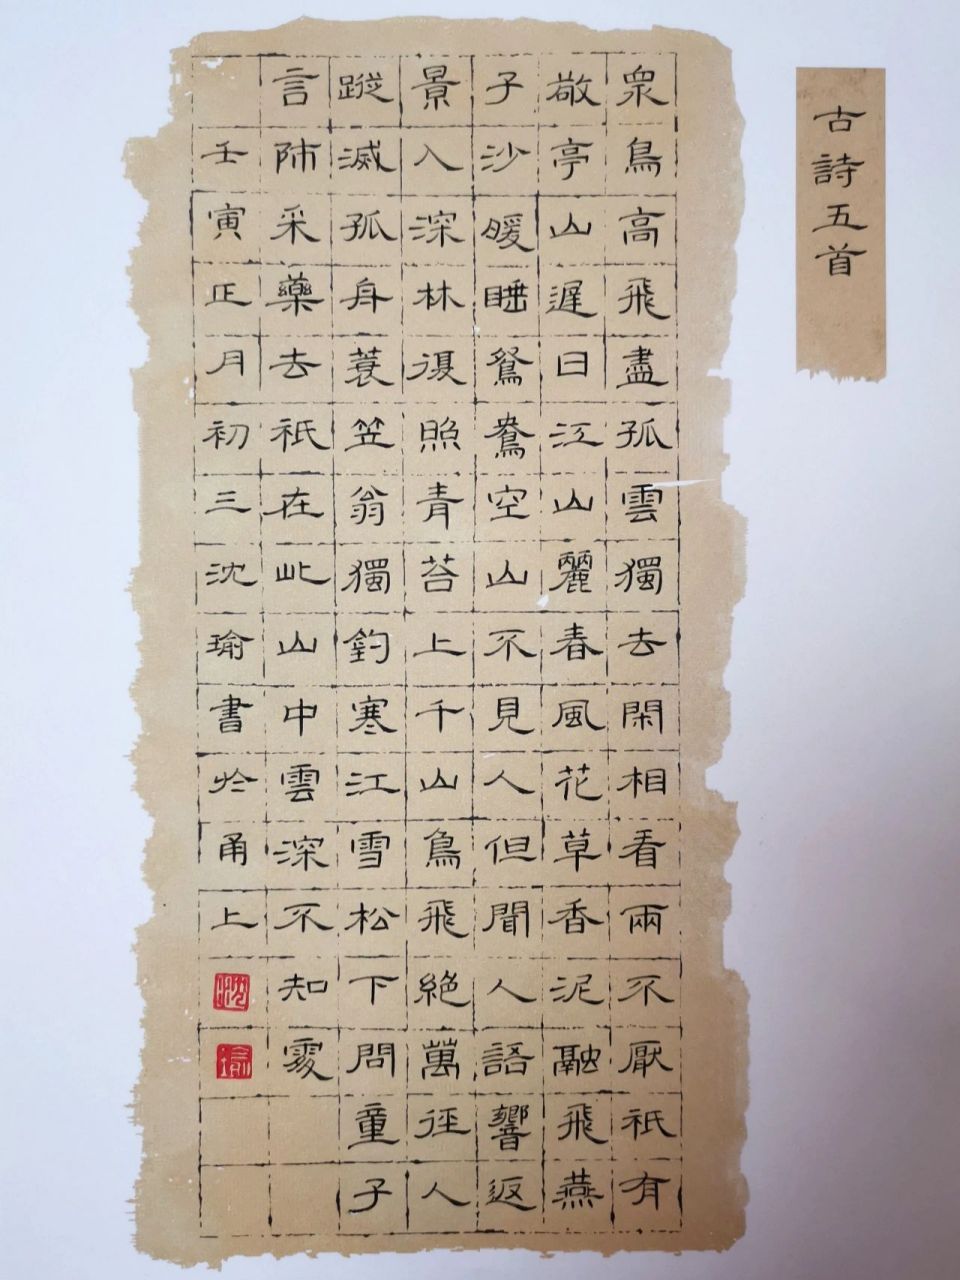 古詩五首
衆鳥高飛盡孤雲獨去閑相看兩不厭祇有
敬亭山遲日江山麗春風花草香泥融飛燕
子沙暖睡鴛鴦空山不見人但聞人語響返
景入深林復照青苔上千山鳥飛絕萬徑人
蹤滅孤舟蓑笠翁獨釣寒江雪松下問童子
言師采藥去祇在此山中雲深不知處
壬寅正月初三沈瑜書於甬上
沈
瑜